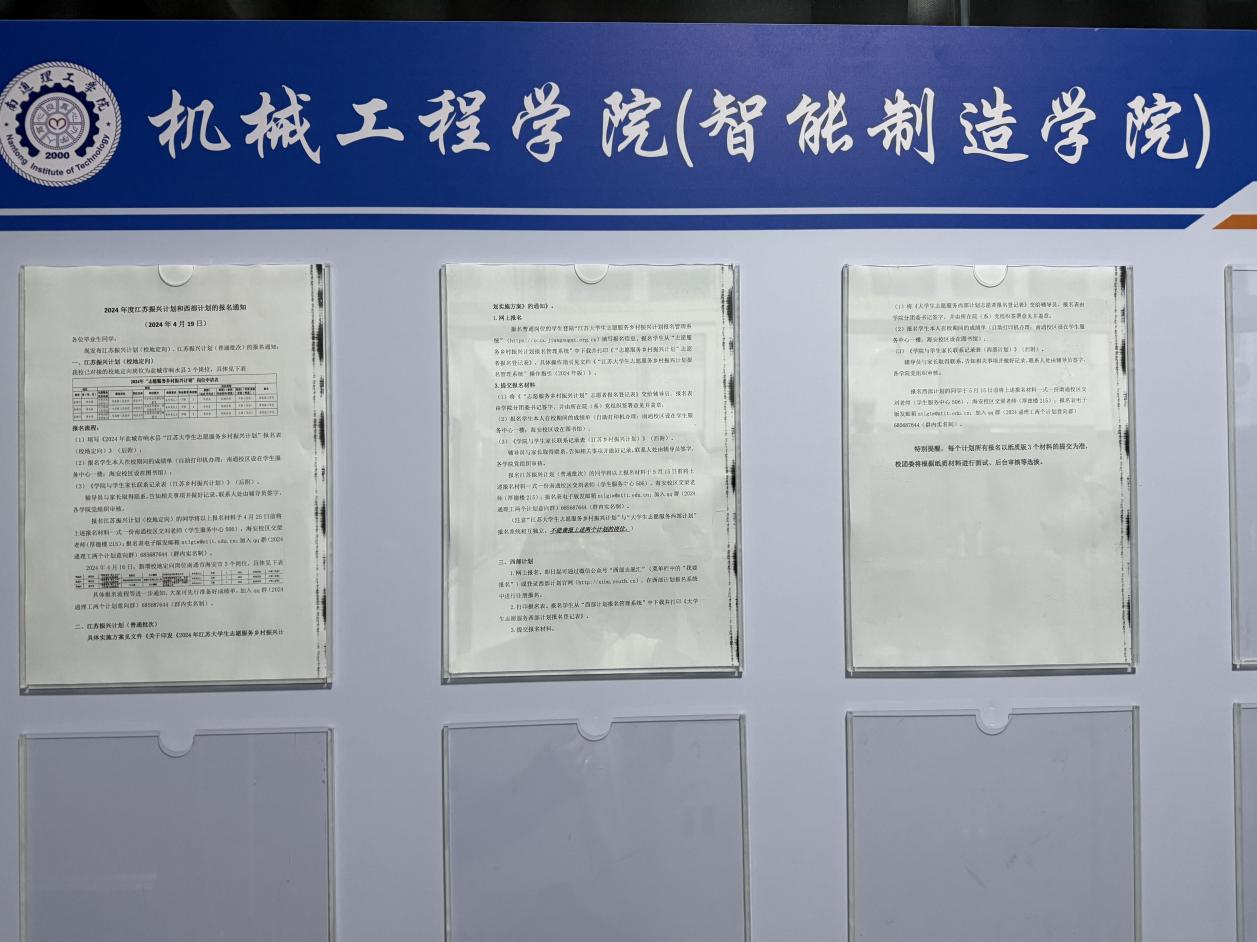 南通理工学院
Nantong Institute of Technology
2000
机械工程学院(智能制造学院)
2024 年度江苏振兴计划和西部计划的报名通知
(2024 年 4 月 19 日)
各位毕业生同学:
现发布江苏振兴计划(校地定向)、江苏振兴计划(普通批次)的报名通知:
一、江苏振兴计划(校地定向)
我校已对接的校地定向岗位为盐城市响水县 3 个岗位, 具体见下表
2024年"志愿服务乡村振兴计划"岗位申请表
报名流程:
(1)填写《2024 年盐城市响水县"江苏大学生志愿服务乡村振兴计划"报名表
(校地定向)》(后附);
(2)报名学生本人在校期间的成绩单(自助打印机办理: 南通校区设在学生服
务中心一楼; 海安校区设在图书馆);
(3)《学院与学生家长联系记录表(江苏振兴计划)》(后附)。
辅导员与家长取得联系, 告知相关事项并做好记录, 联系人处由辅导员签字,
各学院党组织审核。
报名江苏振兴计划(校地定向)的同学将以上报名材料于 4 月 25 日前将
上述报名材料一式一份南通校区交刘老师(学生服务中心 506), 海安校区交梁
老师(厚德楼 215); 报名表电子版发邮箱 ntlgtw@ntit.edu.cn; 加入 qq 群(2024
通理工两个计划意向群)685687644(群内实名制)。
2024 年 4 月 16 日: 新增校地定向岗位南通市海安市 3 个岗位, 具体见下表
具体报名流程等进一步通知, 大家可先行准备好成绩单。加入 qq 群(2024
通理工两个计划意向群)685687644(群内实名制)。
二、江苏振兴计划(普通批次)
具体实施方案见文件《关于印发《2024 年江苏大学生志愿服务乡村振兴计
划实施方案》的通知》。
1.网上报名
报名普通岗位的学生登陆"江苏大学生志愿服务乡村振兴计划报名管理系
统"填写报名信息, 报名学生从"志愿服
务乡村振兴计划报名管理系统"中下载并打印《"志愿服务乡村振兴计划"志愿
者报名登记表》, 具体操作指引见文件《"江苏大学生志愿服务乡村振兴计划报
名管理系统"操作指引(2024 年版)》。
3.提交报名材料
(1)将《"志愿服务乡村振兴计划"志愿者报名登记表》交给辅导员, 报名表
由学院分团委书记签字, 并由所在院(系)党组织签署意见并盖章。
(2)报名学生本人在校期间的成绩单(自助打印机办理: 南通校区设在学生服
务中心一楼; 海安校区设在图书馆);
(3)《学院与学生家长联系记录表(江苏乡村振兴计划)》(后附)。
辅导员与家长取得联系, 告知相关事项并做好记录, 联系人处由辅导员签字,
各学院党组织审核。
报名江苏振兴计划(普通批次)的同学将以上报名材料于 5 月 15 日前将上
述报名材料一式一份南通校区刘老师(学生服务中心 506), 海安校区交梁老
师(厚德楼 215); 报名表电子版发邮箱 ntlgtw@ntit.edu.cn; 加入 qq 群(2024
通理工两个计划意向群)685687644(群内实名制)。
(注意"江苏大学生志愿服务乡村振兴计划"与"大学生志愿服务西部计划"
报名系统相互独立, 不能兼报上述两个计划的岗位。)
三、西部计划
1.网上报名。即日起可通过微信公众号"西部志愿汇"(菜单栏中的"我要
报名")或登录西部计划官网(http://xibu.youth.cn), 在西部计划报名系统
中进行注册报名。
2.打印报名表。报名学生从"西部计划报名管理系统"中下载并打印《大学
生志愿服务西部计划报名登记表》。
3.提交报名材料。
(1)将《大学生志愿服务西部计划志愿者报名登记表》交给辅导员, 报名表由
学院分团委书记签字, 并由所在院(系)党组织签署意见并盖章。
(2)报名学生本人在校期间的成绩单(自助打印机办理: 南通校区设在学生服
务中心一楼; 海安校区设在图书馆);
(3)《学院与学生家长联系记录表(西部计划)》(后附)。
辅导员与家长取得联系, 告知相关事项并做好记录, 联系人处由辅导员签字,
各学院党组织审核。
报名西部计划的同学于 5 月 15 日前将上述报名材料一式一份南通校区交
刘老师(学生服务中心 506), 海安校区交梁老师(厚德楼 215); 报名表电子
版发邮箱 ntlgtw@ntit.edu.cn; 加入 qq 群(2024 通理工两个计划意向群)
685687644(群内实名制)。
特别提醒, 每个计划所有报名以纸质版 3 个材料的提交为准,
校团委将根据纸质材料进行面试、后台审核等选拔。